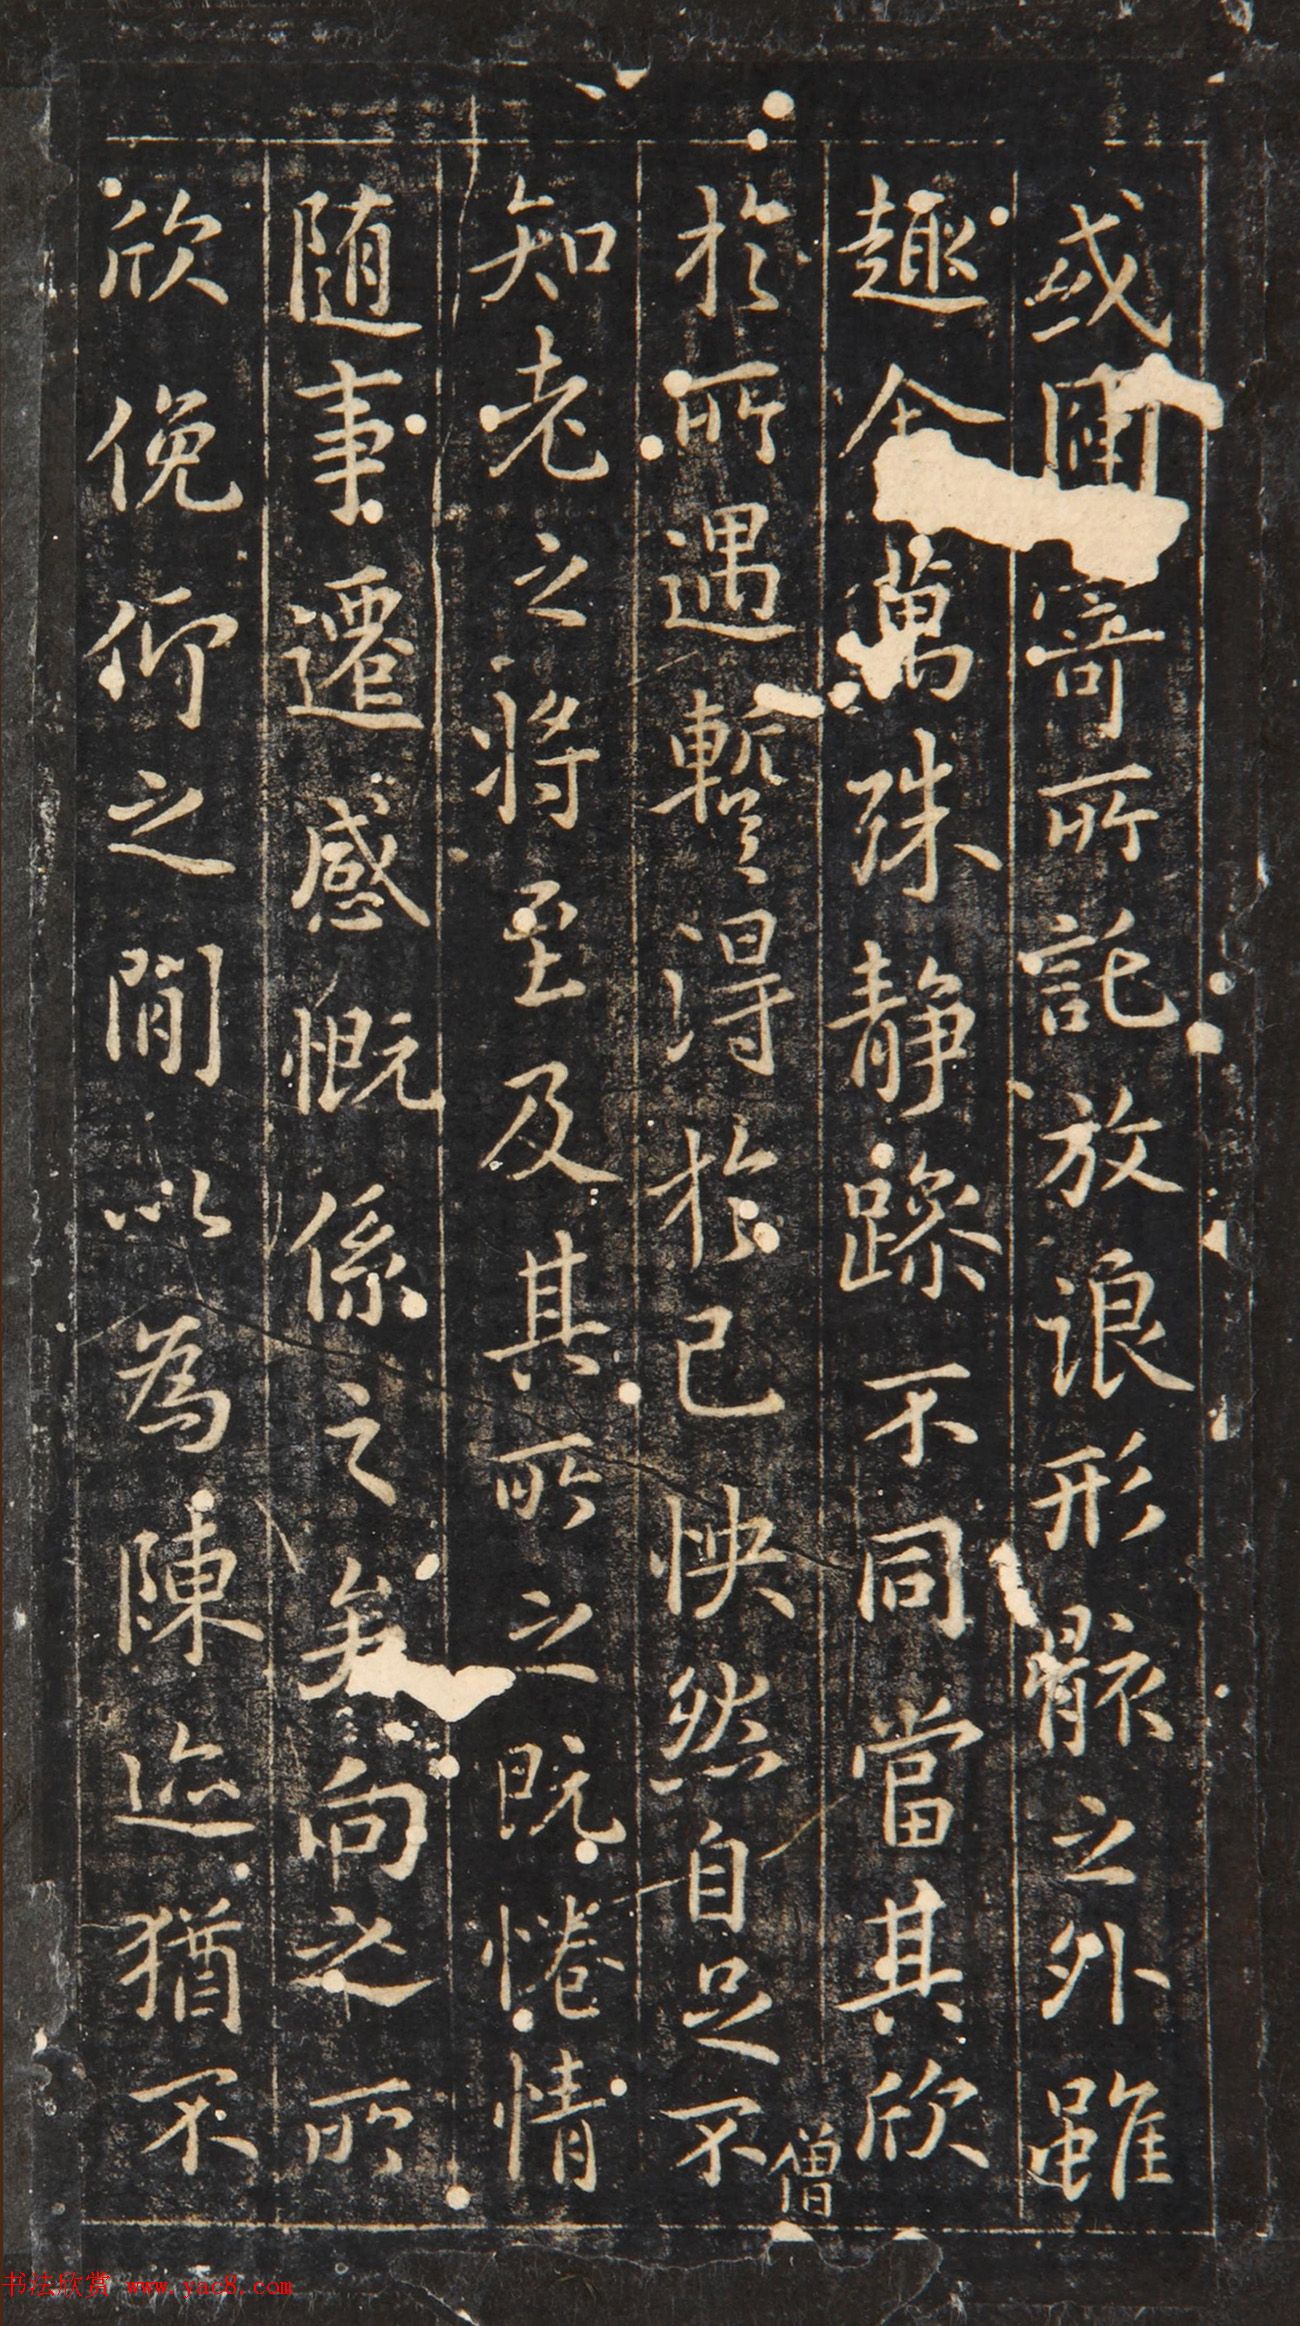 或因寄所託放浪形骸之外雖
趣舍萬殊静躁不同當其欣
於所遇暫得於己怏然自足不
僧
知老之將至及其所之既惓情
随事遷感慨係之矣向之所
欣俛仰之間以為陳迹猶不
书法欣赏 www.yac8.com